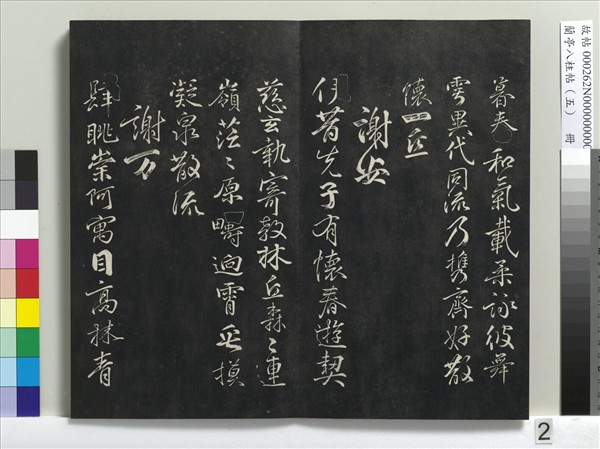 故帖 000262N000000000
蘭亭八柱帖（五） 冊
暮 和氣載柔詠彼舞
雩異代同流乃攜齊好散
懷一丘
謝安
伊昔先子有懷春遊契
慈玄執寄敖林丘森〻連
嶺茫〻原疇迥霄垂
凝泉散流
謝万
肆眺崇阿寓目高林青
2